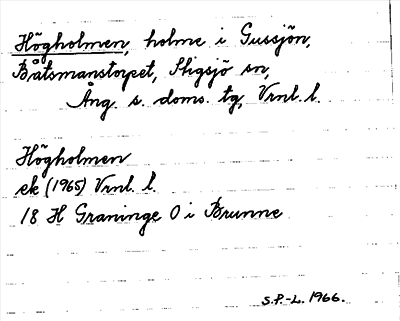 Högholmen, holme i Gussjön,
Båtsmanstorpet, Stigsjö sn,
Ång. s. doms. tg, Vrnl. l.
Högholmen
ek (1965) Vrnl. l.
18 H Graninge O i Brunne
S.P.-L. 1966.